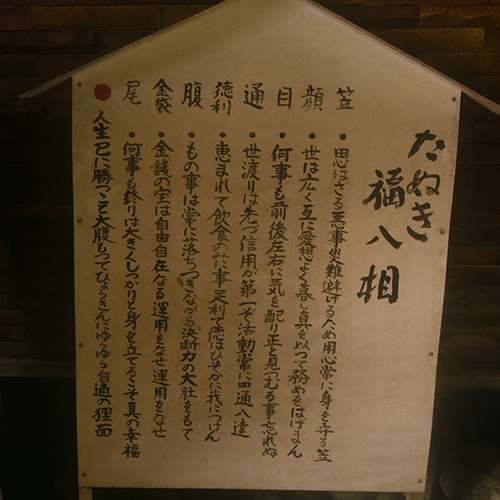 たぬき
福八相
笠 ・ 思はざる悪事災難避けるため用心常に身を守る笠
顔 ・ 世は広く互に愛想よく暮し真を以つて務めをはげまん
目 ・ 何事も前後左右に気を配り正しく見つむる事忘れぬ
通 ・ 世渡りは先づ信用が第一ぞ活動常に四通八達
徳利 ・ 恵まれて飲食のみに事足利て徳はひそかに我につけん
腹 ・ もの事は常に落ちつきながら決断力の大肚をもて
金袋 ・ 金銭の宝は自由自在なる運用をなせ運用をなせ
尾 ・ 何事も終りは大きくしつかりと身を立てるこそ真の幸福
● 人生己に勝つこそ大腹もつてひょうきんにゆるゆる自適の狸面